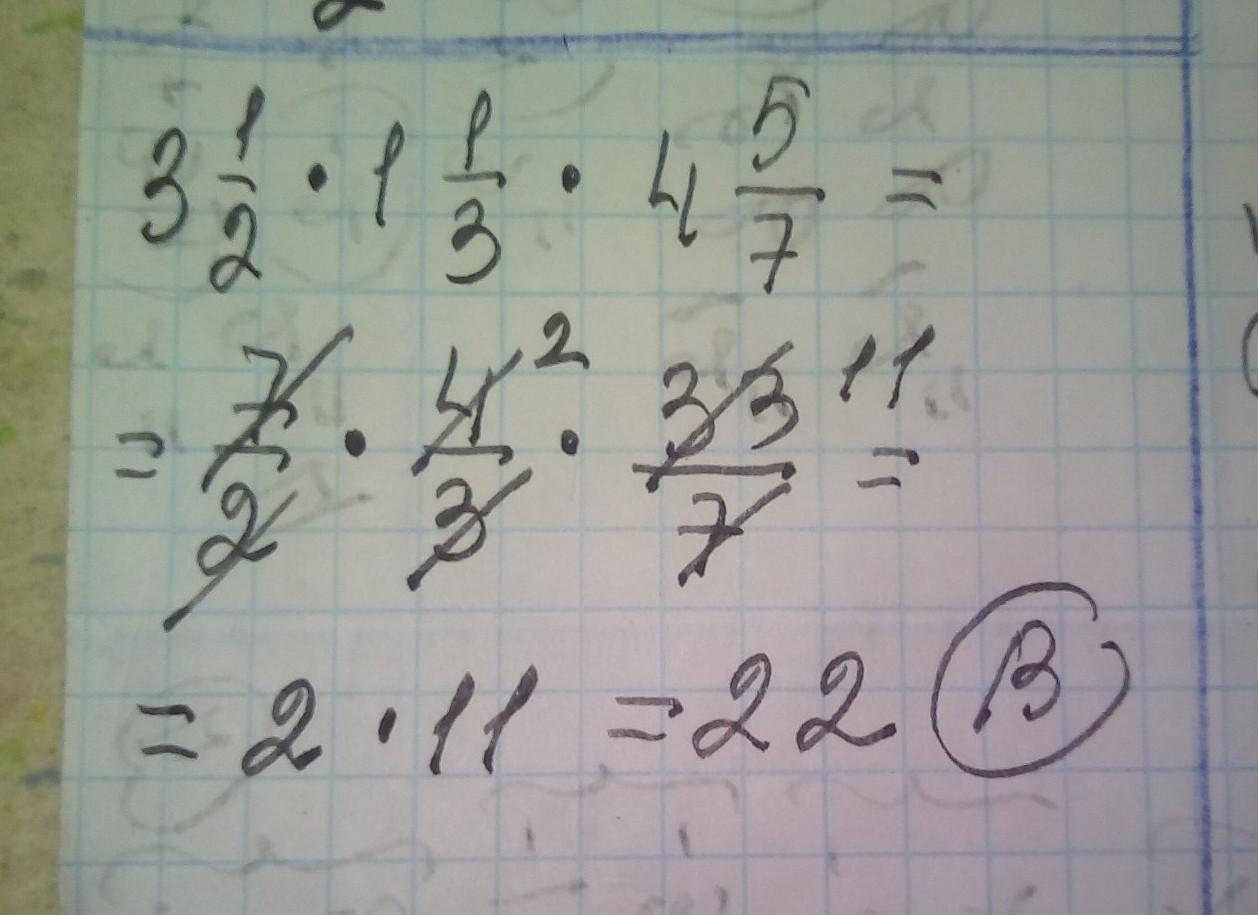 3 1/2 · 1 1/3 · 4 5/7 =
= 7/2 · 4/3 2 · 33/7 11 =
= 2 · 11 = 22 В